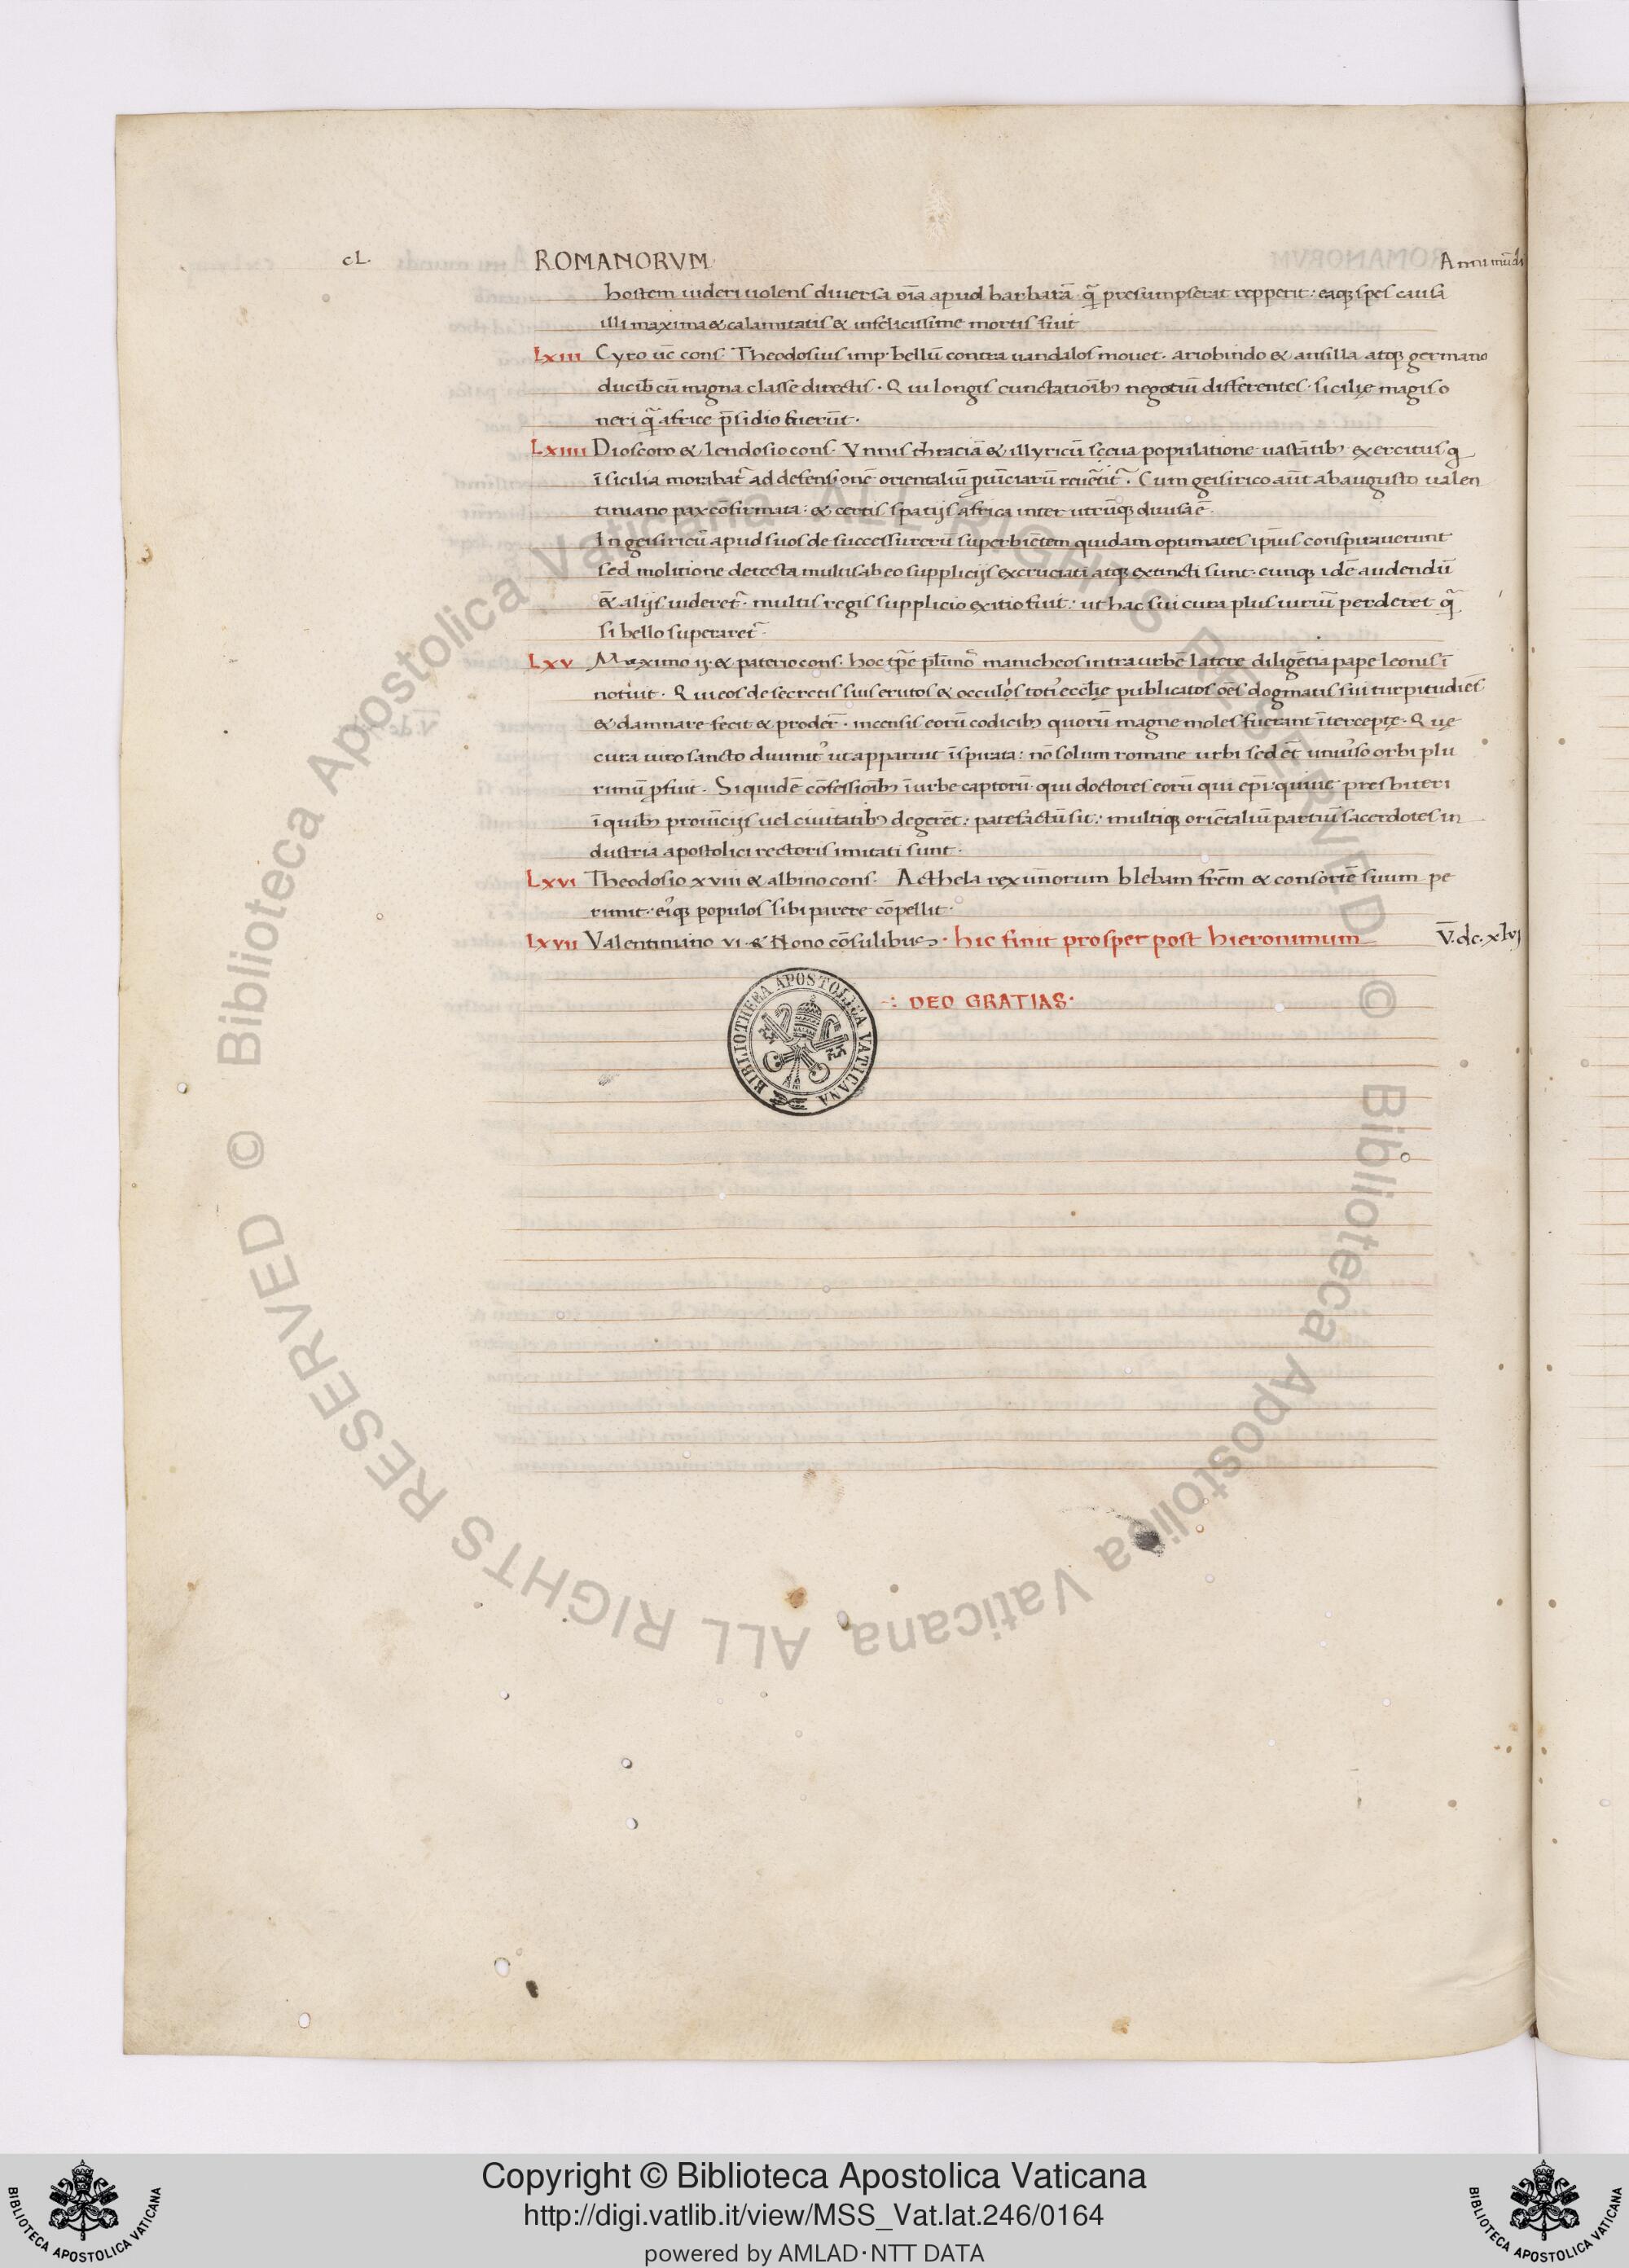 cL.
ROMANORVM
Anni mūdi
hostem uideri uolens diuersa oīa apud barbarā q̄ presumpserat repperit: eaq; spes causa
illi maxima & calamitatis & infelicissime mortis fuit
Lxiii Cyro uc̄ cons· Theodosius imp· bellū contra uandalos mouet· ariobindo & ansilla atq; germano
ducib; cū magna classe directis· Qui longis cunctatiōib; negotiū differentes· sicilię magis o
neri q̄ africe p̄sidio fuerūt·
Lxiiii Dioscoro & lendosio cons· Vnnis thraciā & illyricū sęcua populatione uastātib; exercitus q
ī sicilia morabat̃ ad defensionē orientaliū ꝓuīciarū reuẽtit̃· Cum geisirico aūt ab augusto ualen
tiniano pax cōfirmata: & certis spatijs africa inter utrūq; diuisa ē·
In geisiricū apud suos de successu rerū superbiētem quidam optimates ipsius conspirauerunt
sed molitione detecta multis ab eo supplicijs excruciati atq; extincti sunt· cunq; idē audendū
& alijs uideret̃· multis regis supplicio exitio fuit: ut hac sui cura plus uiriū perderet q̄
si bello superaret̃·
Lxv Maximo ij· & paterio cons· hoc tp̄e plīmos manicheos intra urbē latere diligētia pape leonis ī
notuit· Qui eos de secretis suis erutos & occulis toti ecclīe publicatos oēs dogmatis sui turpitudiēs
& damnare fecit & proder̄· incensis eorū codicib; quorū magne moles fuerant ītercepte· Quę
cura uiro sancto diuinit᾽ ut apparuit īspirata: nō solum romane urbi sed ēt uniu᾽so orbi plu
rimū ꝓfuit· Siquidē cōfessiōib; ī urbe captorū· qui doctores eorū qui ep̄i· quiue presbiteri
ī quib; prouīcijs uel ciuitatib; degerēt: patefactū sit: multiq; oriētaliū partiū sacerdotes in
dustria apostolici rectoris imitati sunt·
Lxvi Theodosio xviii & albino cons· Acthela rex unnorum blebam frēm & consortē suum pe
rimit· ei᾽q; populos sibi parere cōpellit·
Lxvii Valentiniano vi· & Nono cōsulibus· hic finit prosper post hieronimum V̄·dc·xlvj
-: DEO GRATIAS·
BIBLIOTHECA APOSTOLICA VATICANA
© Biblioteca Apostolica Vaticana ALL RIGHTS RESERVED © Biblioteca Apostolica Vaticana ALL RIGHTS RESERVED
Copyright © Biblioteca Apostolica Vaticana
http://digi.vatlib.it/view/MSS_Vat.lat.246/0164
powered by AMLAD·NTT DATA
BIBLIOTECA APOSTOLICA VATICANA
BIBLIOTECA APOSTOLICA VATICANA